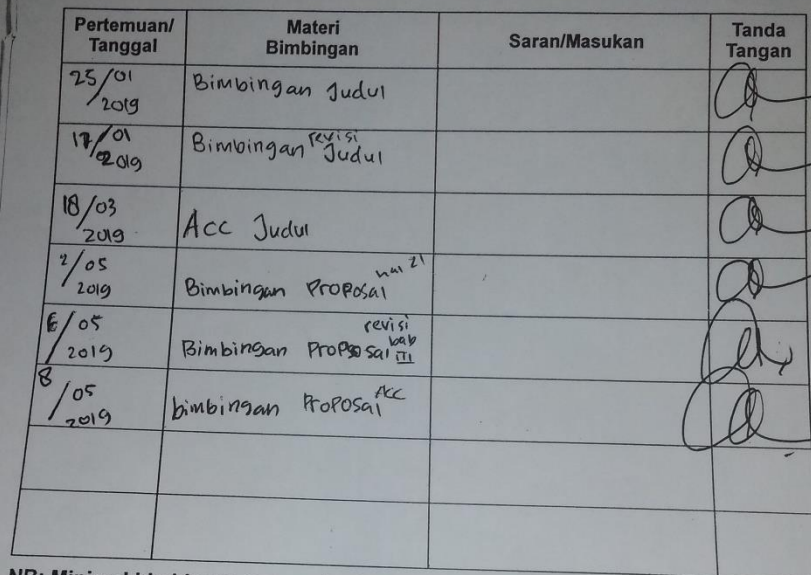 Pertemuan/
Tanggal
Materi
Bimbingan
Saran/Masukan
Tanda
Tangan
25/01
2019
Bimbingan Judul
17/01
2019
Bimbingan revisi Judul
18/03
2019
Acc Judul
2/05
2019
Bimbingan Proposal hal 21
6/05
2019
revisi
Bimbingan Proposal bab III
8/05
2019
bimbingan Proposal Acc